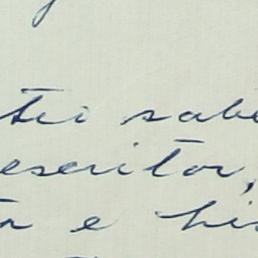 tei sabe
escritor,
e his